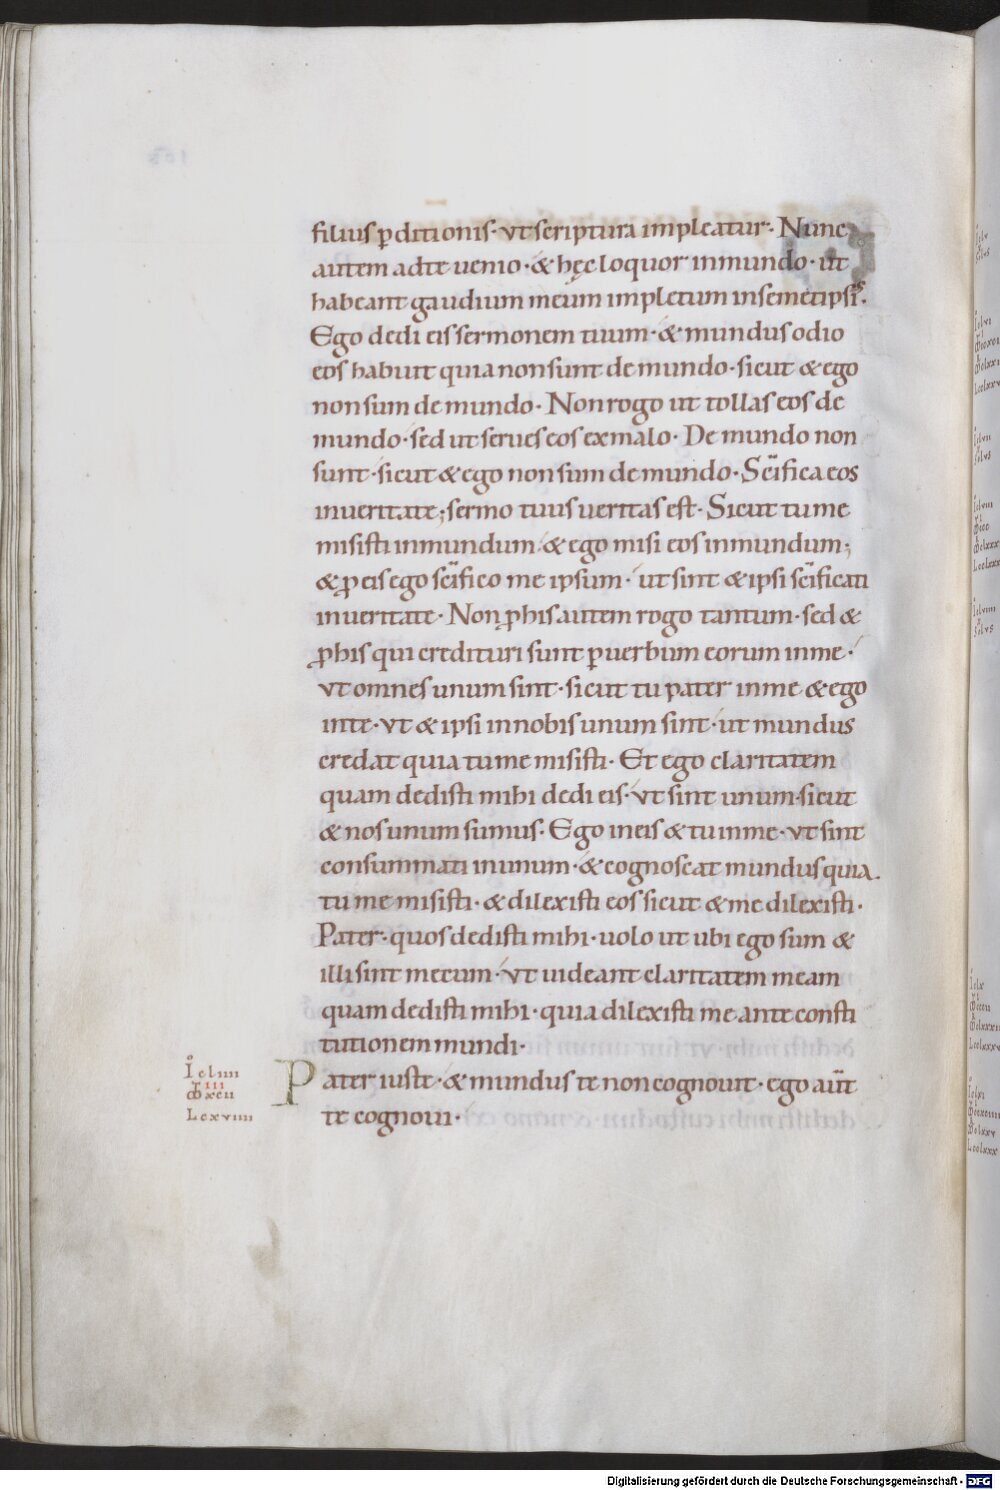 filius ꝑditionis· vt scriptura impleatur· Nunc
autem ad te uenio· & hęc loquor in mundo· ut
habeant gaudium meum impletum in semetipsis·
Ego dedi eis sermonem tuum· & mundus odio
eos habuit quia non sunt de mundo· sicut & ego
non sum de mundo· Non rogo ut tollas eos de
mundo· sed ut serues eos ex malo· De mundo non
sunt· sicut & ego non sum de mundo· Scīfica eos
in ueritate; sermo tuus ueritas est· Sicut tu me
misisti in mundum· & ego misi eos in mundum;
& ꝓ eis ego scīfico me ipsum· ut sint & ipsi scīficati
in ueritate· Non ꝓ his autem rogo tantum· sed &
ꝓ his qui credituri sunt ꝑ uerbum eorum in me·
vt omnes unum sint· sicut tu pater in me & ego
in te· vt & ipsi in nobis unum sint· ut mundus
credat quia tu me misisti· Et ego claritatem
quam dedisti mihi dedi eis· vt sint unum· sicut
& nos unum sumus· Ego in eis & tu in me· vt sint
consummati in unum· & cognoscat mundus quia
tu me misisti· & dilexisti eos sicut & me dilexisti·
Pater· quos dedisti mihi· uolo ut ubi ego sum &
illi sint mecum· vt uideant claritatem meam
quam dedisti mihi· quia dilexisti me ante consti
tutionem mundi·
Pater iuste· & mundus te non cognouit· ego aūt
te cognoui·
Digitalisierung gefördert durch die Deutsche Forschungsgemeinschaft - DFG